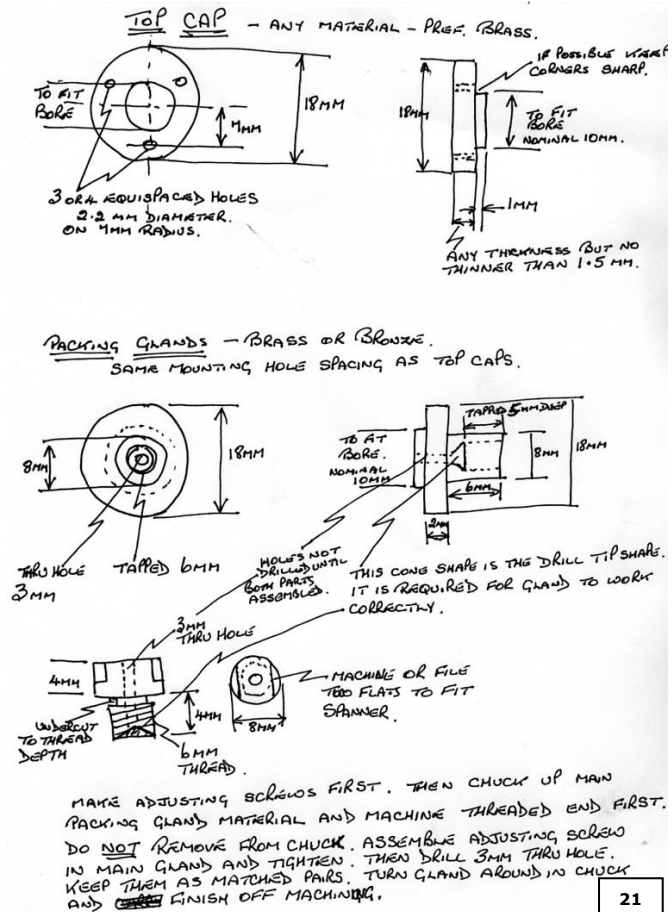 TOP CAP - ANY MATERIAL - PREF. BRASS.
IF POSSIBLE KEEP
CORNERS SHARP.
TO FIT
BORE
7MM
18MM
18MM
TO FIT
BORE
NOMINAL 10MM.
3 OR 4 EQUISPACED HOLES
2.2 MM DIAMETER.
ON 7MM RADIUS.
1MM
ANY THICKNESS BUT NO
THINNER THAN 1.5 MM.
PACKING GLANDS - BRASS OR BRONZE.
SAME MOUNTING HOLE SPACING AS TOP CAPS.
8MM
18MM
THRU HOLE
3MM
TAPPED 6MM
TO FIT
BORE.
NOMINAL
10MM
TAPPED 5MM DEEP
8MM
18MM
6MM
2MM
HOLES NOT
DRILLED UNTIL
BOTH PARTS
ASSEMBLED.
THIS CONE SHAPE IS THE DRILL TIP SHAPE.
IT IS REQUIRED FOR GLAND TO WORK
CORRECTLY.
3MM
THRU HOLE
4MM
UNDERCUT
TO THREAD
DEPTH
4MM
6MM
THREAD.
8MM
MACHINE OR FILE
TWO FLATS TO FIT
SPANNER.
MAKE ADJUSTING SCREWS FIRST. THEN CHUCK UP MAIN
PACKING GLAND MATERIAL AND MACHINE THREADED END FIRST.
DO NOT REMOVE FROM CHUCK. ASSEMBLE ADJUSTING SCREW
IN MAIN GLAND AND TIGHTEN. THEN DRILL 3MM THRU HOLE.
KEEP THEM AS MATCHED PAIRS. TURN GLAND AROUND IN CHUCK
AND FINISH OFF MACHINING.
21